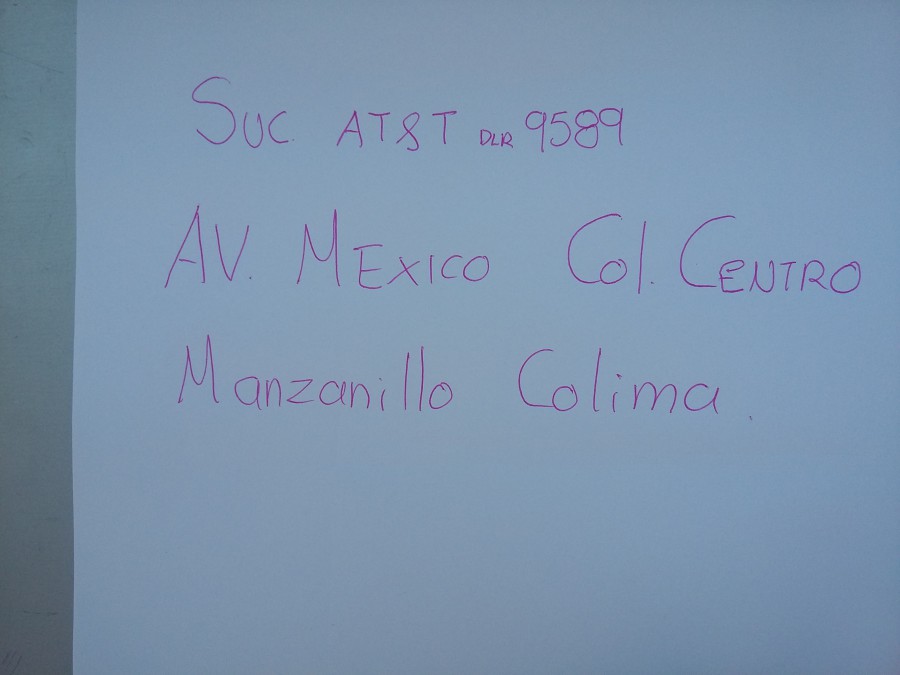 Suc AT&T DLR 9589
AV. MEXICO Col. CENTRO
Manzanillo Colima.